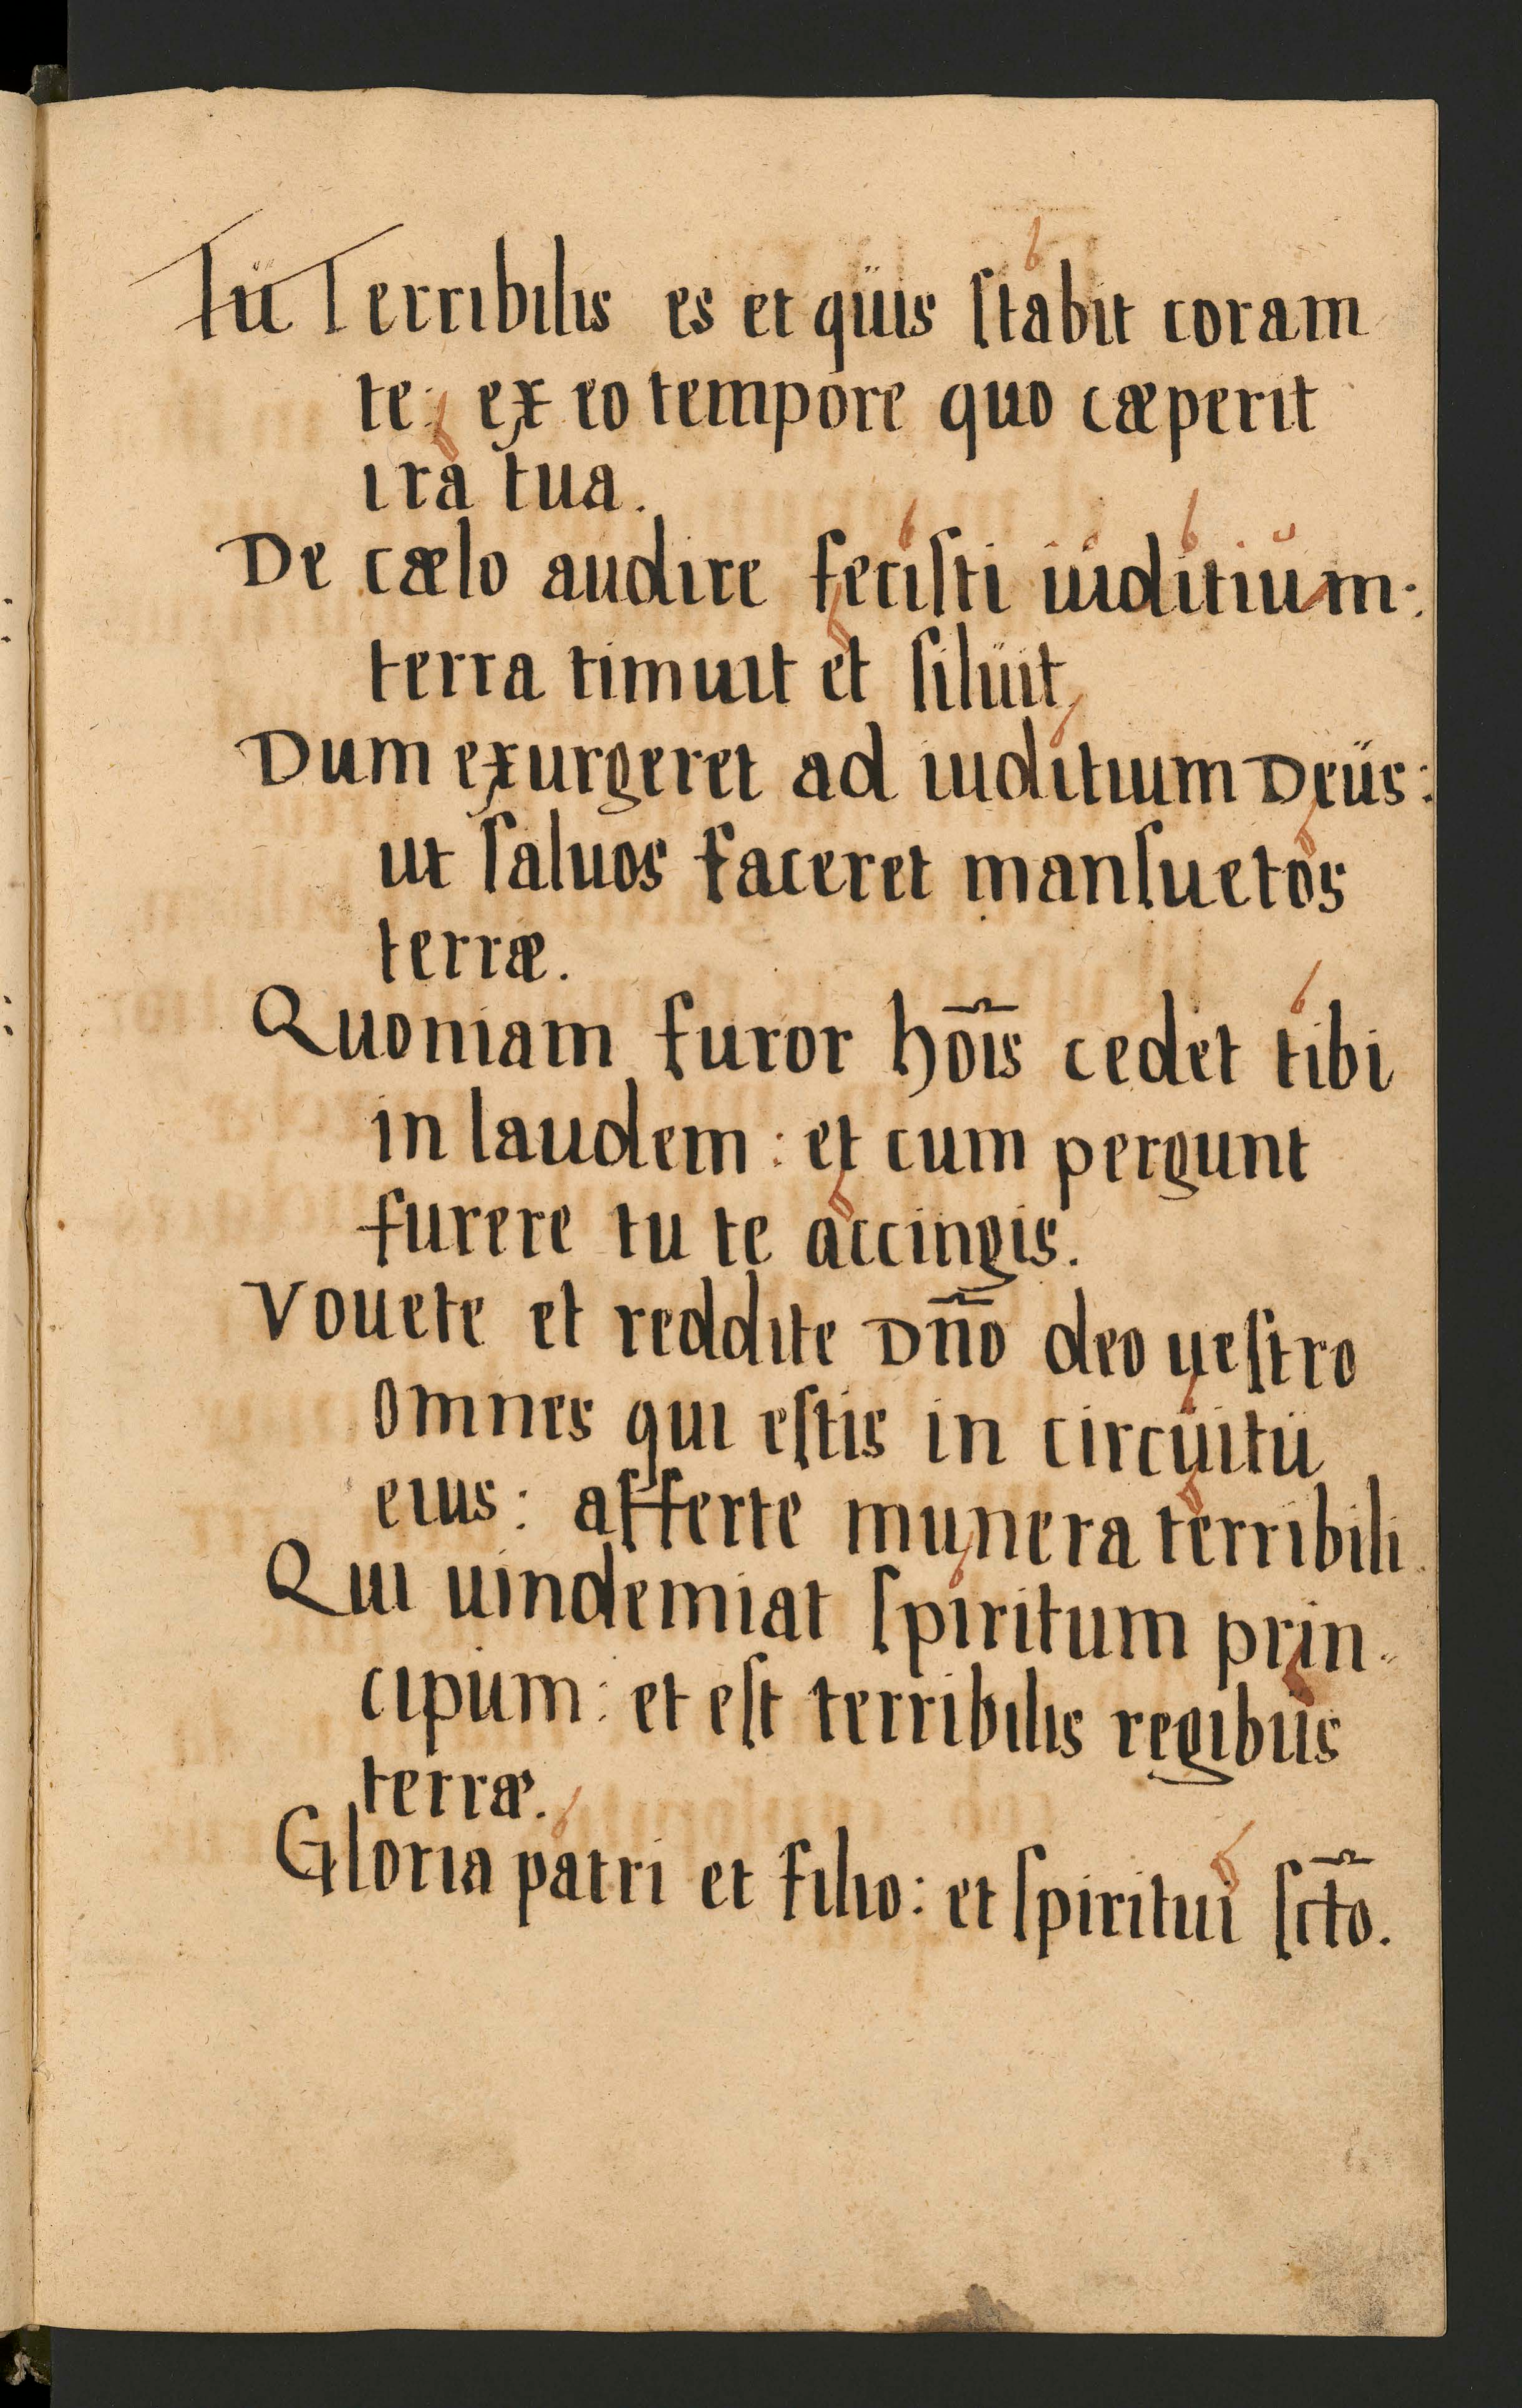 Tü Terribilis es et qüis ſtabit coram
te: ex eo tempore quo cæperit
ira tua.
De cælo audire feciſti iuditium:
terra timuit et ſilüit
Dum exurgeret ad iuditium Deüs:
ut ſaluos faceret manſuetos
terræ.
Quoniam furor hõis cedet tibi
in laudem: et cum pergunt
furere tu te accingis.
Vouete et reddite Dño deo ueſtro
omnes qui eſtis in circuitü
eius: afferte munera terribili
Qui uindemiat ſpiritum prin-
cipum: et eſt terribilis regibüs
terræ.
Gloria patri et filio: et ſpiritui ſct̃o.